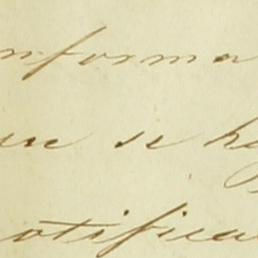 nforma
ue se ha
otifica